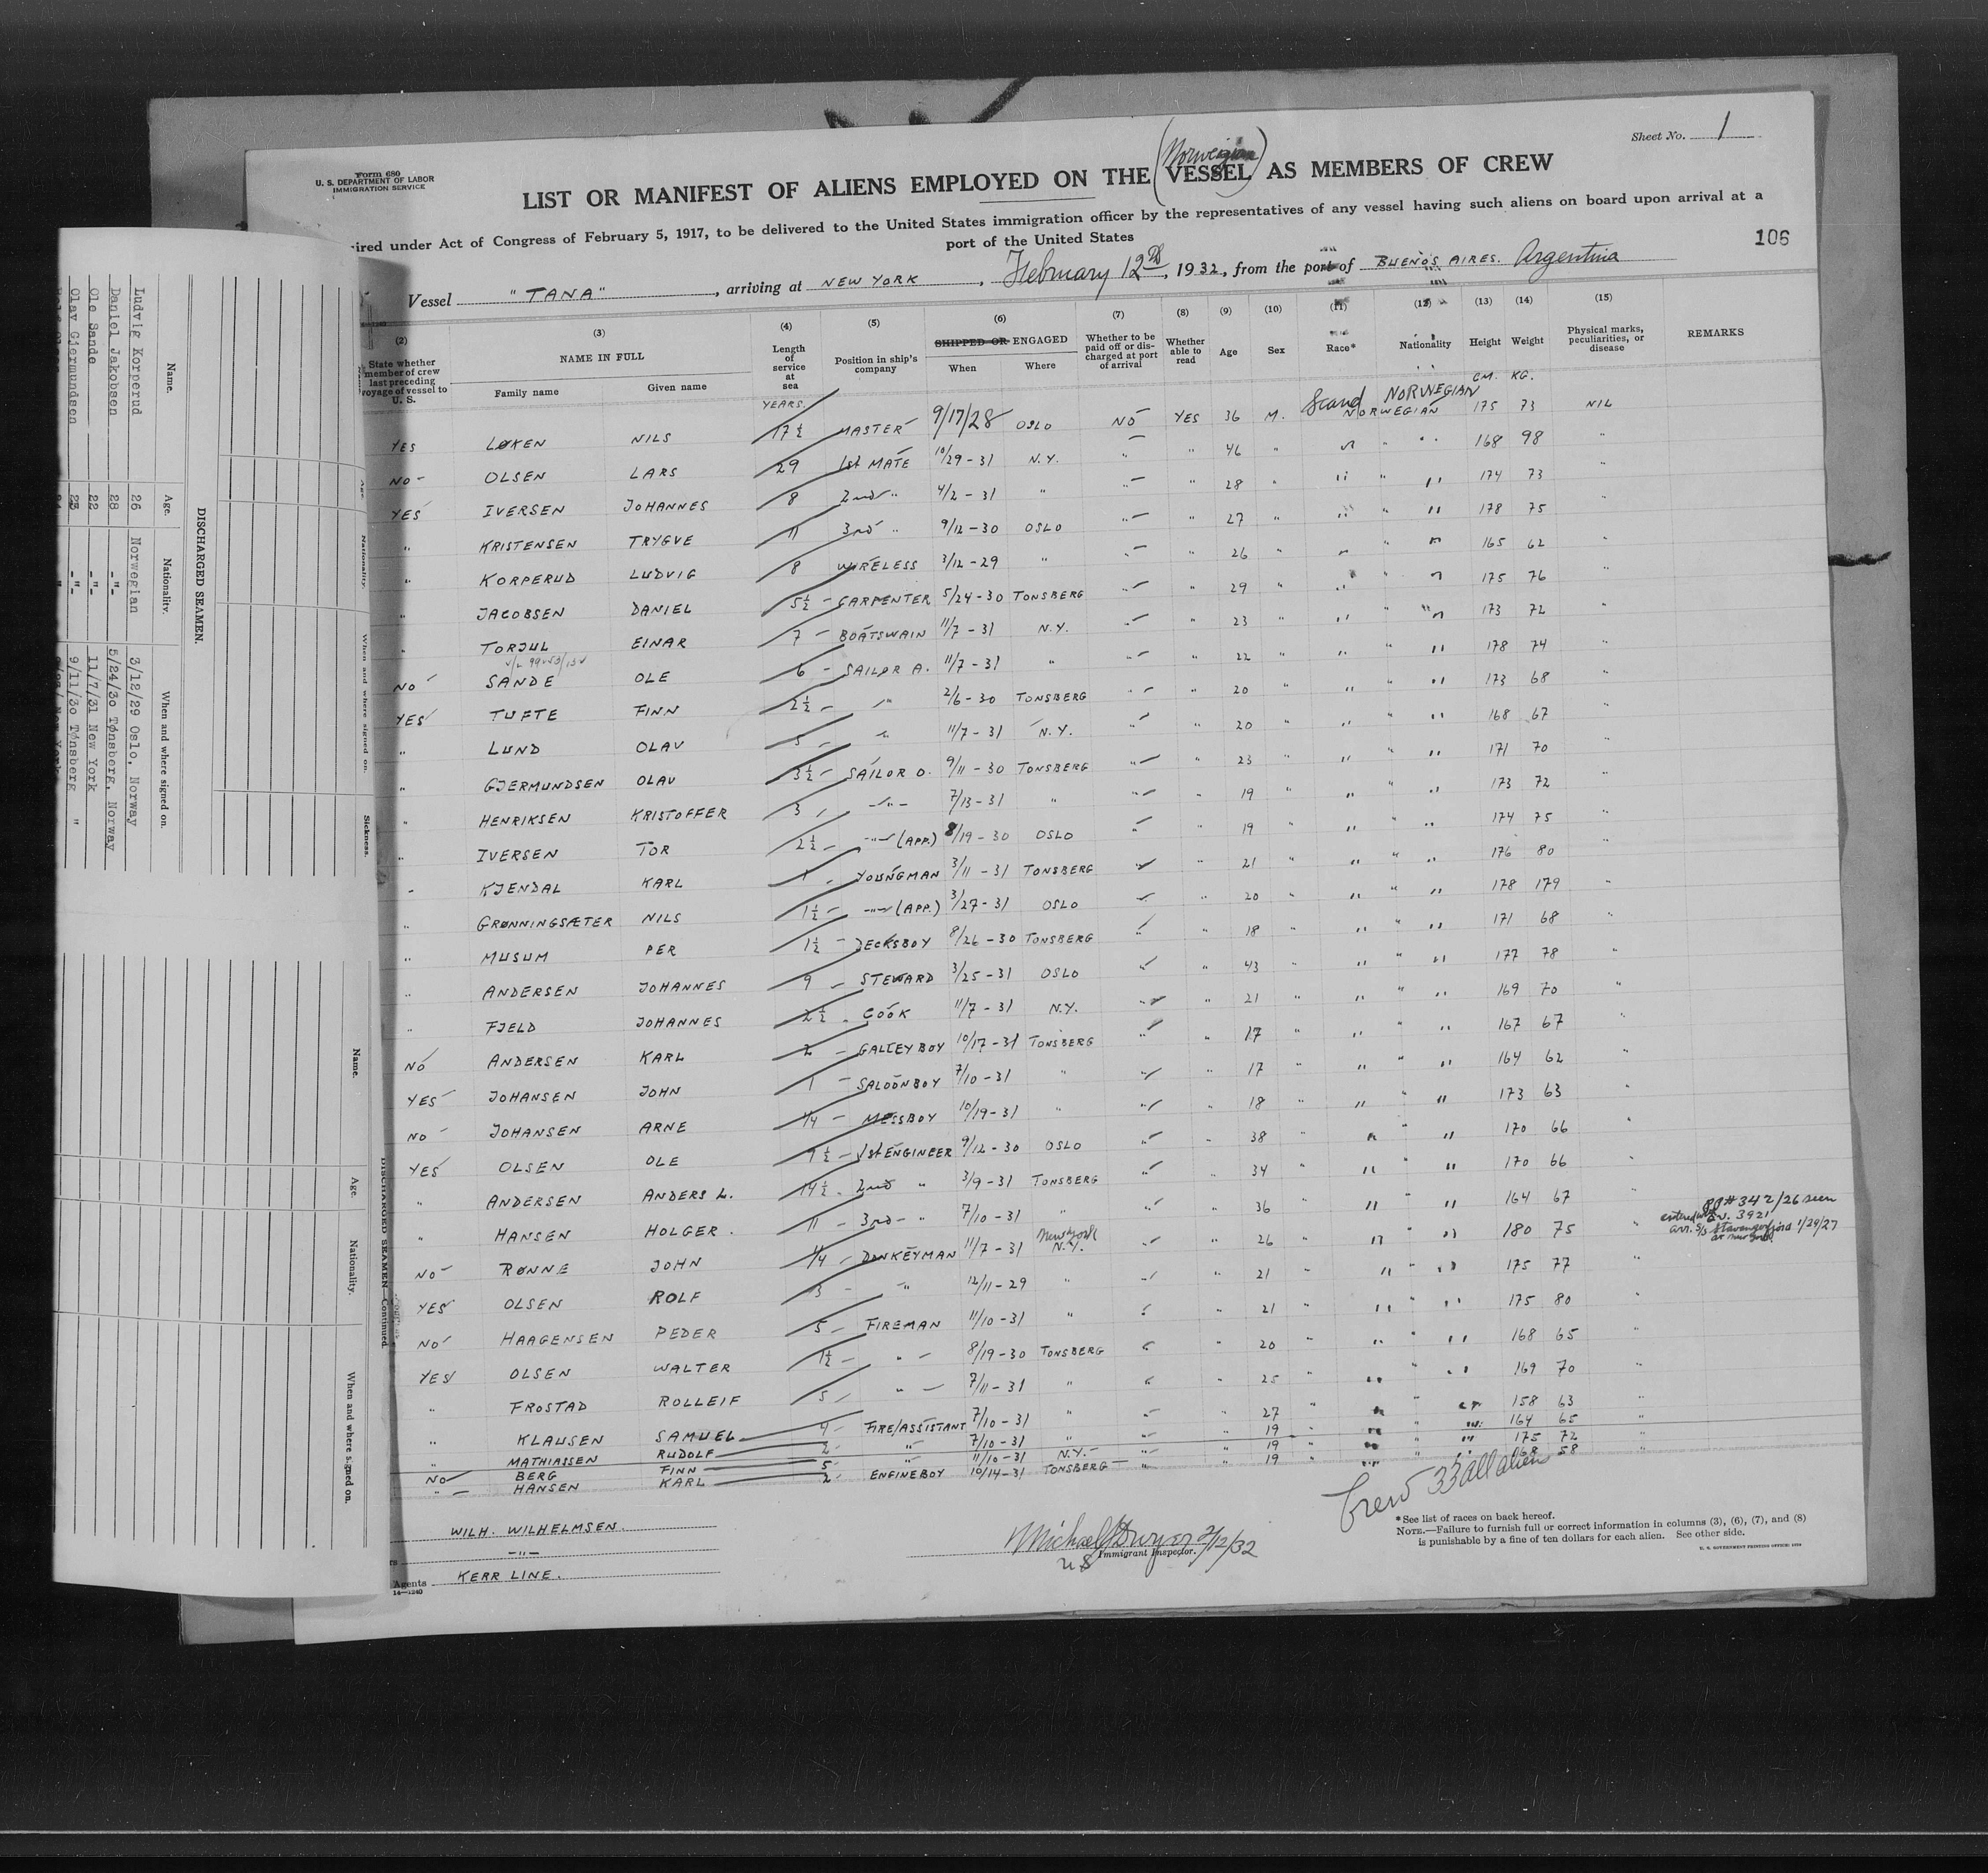 Sheet No. 1
Form 680
U. S. DEPARTMENT OF LABOR
IMMIGRATION SERVICE
(Norwegian)
LIST OR MANIFEST OF ALIENS EMPLOYED ON THE VESSEL AS MEMBERS OF CREW
ired under Act of Congress of February 5, 1917, to be delivered to the United States immigration officer by the representatives of any vessel having such aliens on board upon arrival at a
port of the United States
106
Vessel "TANA", arriving at NEW YORK, February 12th, 1932, from the port of BUENOS AIRES. Argentina
(2) (3) (4) (5) (6) (7) (8) (9) (10) (11) (12) (13) (14) (15)
State whether member of crew last preceding voyage of vessel to U. S. NAME IN FULL Family name Given name Length of service at sea Position in ship's company SHIPPED OR ENGAGED When Where Whether to be paid off or discharged at port of arrival Whether able to read Age Sex Race* Nationality Height Weight Physical marks, peculiarities, or disease REMARKS
YEARS. CM. KG.
Scand NORWEGIAN
YES LØKEN NILS 17½ MASTER 9/17/28 OSLO NO YES 36 M. NORWEGIAN 175 73 NIL
NO - OLSEN LARS 29 1st MATE 10/29-31 N.Y. " " 46 " " " 168 98 "
YES IVERSEN JOHANNES 8 2nd " 4/2-31 " " " 28 " " " 174 73 "
" KRISTENSEN TRYGVE 11 3rd " 9/12-30 OSLO " " 27 " " " 178 75 "
" KORPERUD LUDVIG 8 WIRELESS 3/12-29 " " " 26 " " " 165 62 "
" JACOBSEN DANIEL 5½ CARPENTER 5/24-30 TONSBERG " " 29 " " " 175 76 "
" TORJUL EINAR 7 BOATSWAIN 11/7-31 N.Y. " " 23 " " " 173 72 "
NO SANDE OLE 6 SAILOR A. 11/7-31 " " " 22 " " " 178 74 "
YES TUFTE FINN 2½ " 2/6-30 TONSBERG " " 20 " " " 173 68 "
" LUND OLAV 3 " 11/7-31 N.Y. " " 20 " " " 168 67 "
" GJERMUNDSEN OLAV 3½ SAILOR O. 9/11-30 TONSBERG " " 23 " " " 171 70 "
" HENRIKSEN KRISTOFFER 3 " 7/13-31 " " " 19 " " " 173 72 "
" IVERSEN TOR 2½ " (APP.) 8/19-30 OSLO " " 19 " " " 174 75 "
" KJENDAL KARL 1 YOUNGMAN 3/11-31 TONSBERG " " 21 " " " 176 80 "
" GRØNNINGSÆTER NILS 1½ " (APP.) 3/27-31 OSLO " " 20 " " " 178 179 "
" MUSUM PER 1½ DECKSBOY 8/26-30 TONSBERG " " 18 " " " 171 68 "
" ANDERSEN JOHANNES 9 STEWARD 3/25-31 OSLO " " 43 " " " 177 78 "
" FJELD JOHANNES 2½ COOK 11/7-31 N.Y. " " 21 " " " 169 70 "
NO ANDERSEN KARL 2 GALLEYBOY 10/17-31 TONSBERG " " 17 " " " 167 67 "
YES JOHANSEN JOHN 1 SALOONBOY 7/10-31 " " " 17 " " " 164 62 "
NO JOHANSEN ARNE ¼ MESSBOY 10/19-31 " " " 18 " " " 173 63 "
YES OLSEN OLE 9½ 1st ENGINEER 9/12-30 OSLO " " 38 " " " 170 66 "
" ANDERSEN ANDERS L. 14½ 2nd " 3/9-31 TONSBERG " " 34 " " " 170 66 "
" HANSEN HOLGER. 11 3rd " 7/10-31 " " " 36 " " " 164 67 "
NO RØNNE JOHN ¼ DONKEYMAN 11/7-31 New York N.Y. " " 26 " " " 180 75 " #342/26 seen 3921 arr. S/S Stavangerfjord 1/29/27
YES OLSEN ROLF 3 " 12/11-29 " " " 21 " " " 175 77 "
NO HAAGENSEN PEDER 5 FIREMAN 11/10-31 " " " 21 " " " 175 80 "
YES OLSEN WALTER 1½ " 8/19-30 TONSBERG " " 20 " " " 168 65 "
" FROSTAD ROLLEIF 5 " 7/11-31 " " " 25 " " " 169 70 "
" KLAUSEN SAMUEL 4 FIRE/ASSISTANT 7/10-31 " " " 27 " " " 158 63 "
" MATHIASSEN RUDOLF 2 " 7/10-31 " " " 19 " " " 164 65 "
NO BERG FINN 5 " 11/10-31 N.Y. " " 19 " " " 175 72 "
" HANSEN KARL 2 ENGINEBOY 10/14-31 TONSBERG " " 19 " " " 168 58 "
Crew 33 all alien
WILH. WILHELMSEN.
-"-
Agents KERR LINE.
14-1240
Michael J Dwyer 2/12/32
U S Immigrant Inspector.
*See list of races on back hereof.
NOTE.—Failure to furnish full or correct information in columns (3), (6), (7), and (8)
is punishable by a fine of ten dollars for each alien. See other side.
U. S. GOVERNMENT PRINTING OFFICE
DISCHARGED SEAMEN.
Name. Age. Nationality. When and where signed on.
Ludvig Korperud 26 Norwegian 3/12/29 Oslo, Norway
Daniel Jakobsen 28 -"- 5/24/30 Tønsberg, Norway
Ole Sande 22 -"- 11/7/31 New York
Olav Gjermundsen 23 -"- 9/11/30 Tønsberg "
Age. Nationality. When and where signed on. Sickness.
DISCHARGED SEAMEN—Continued
Name. Age. Nationality. When and where signed on.